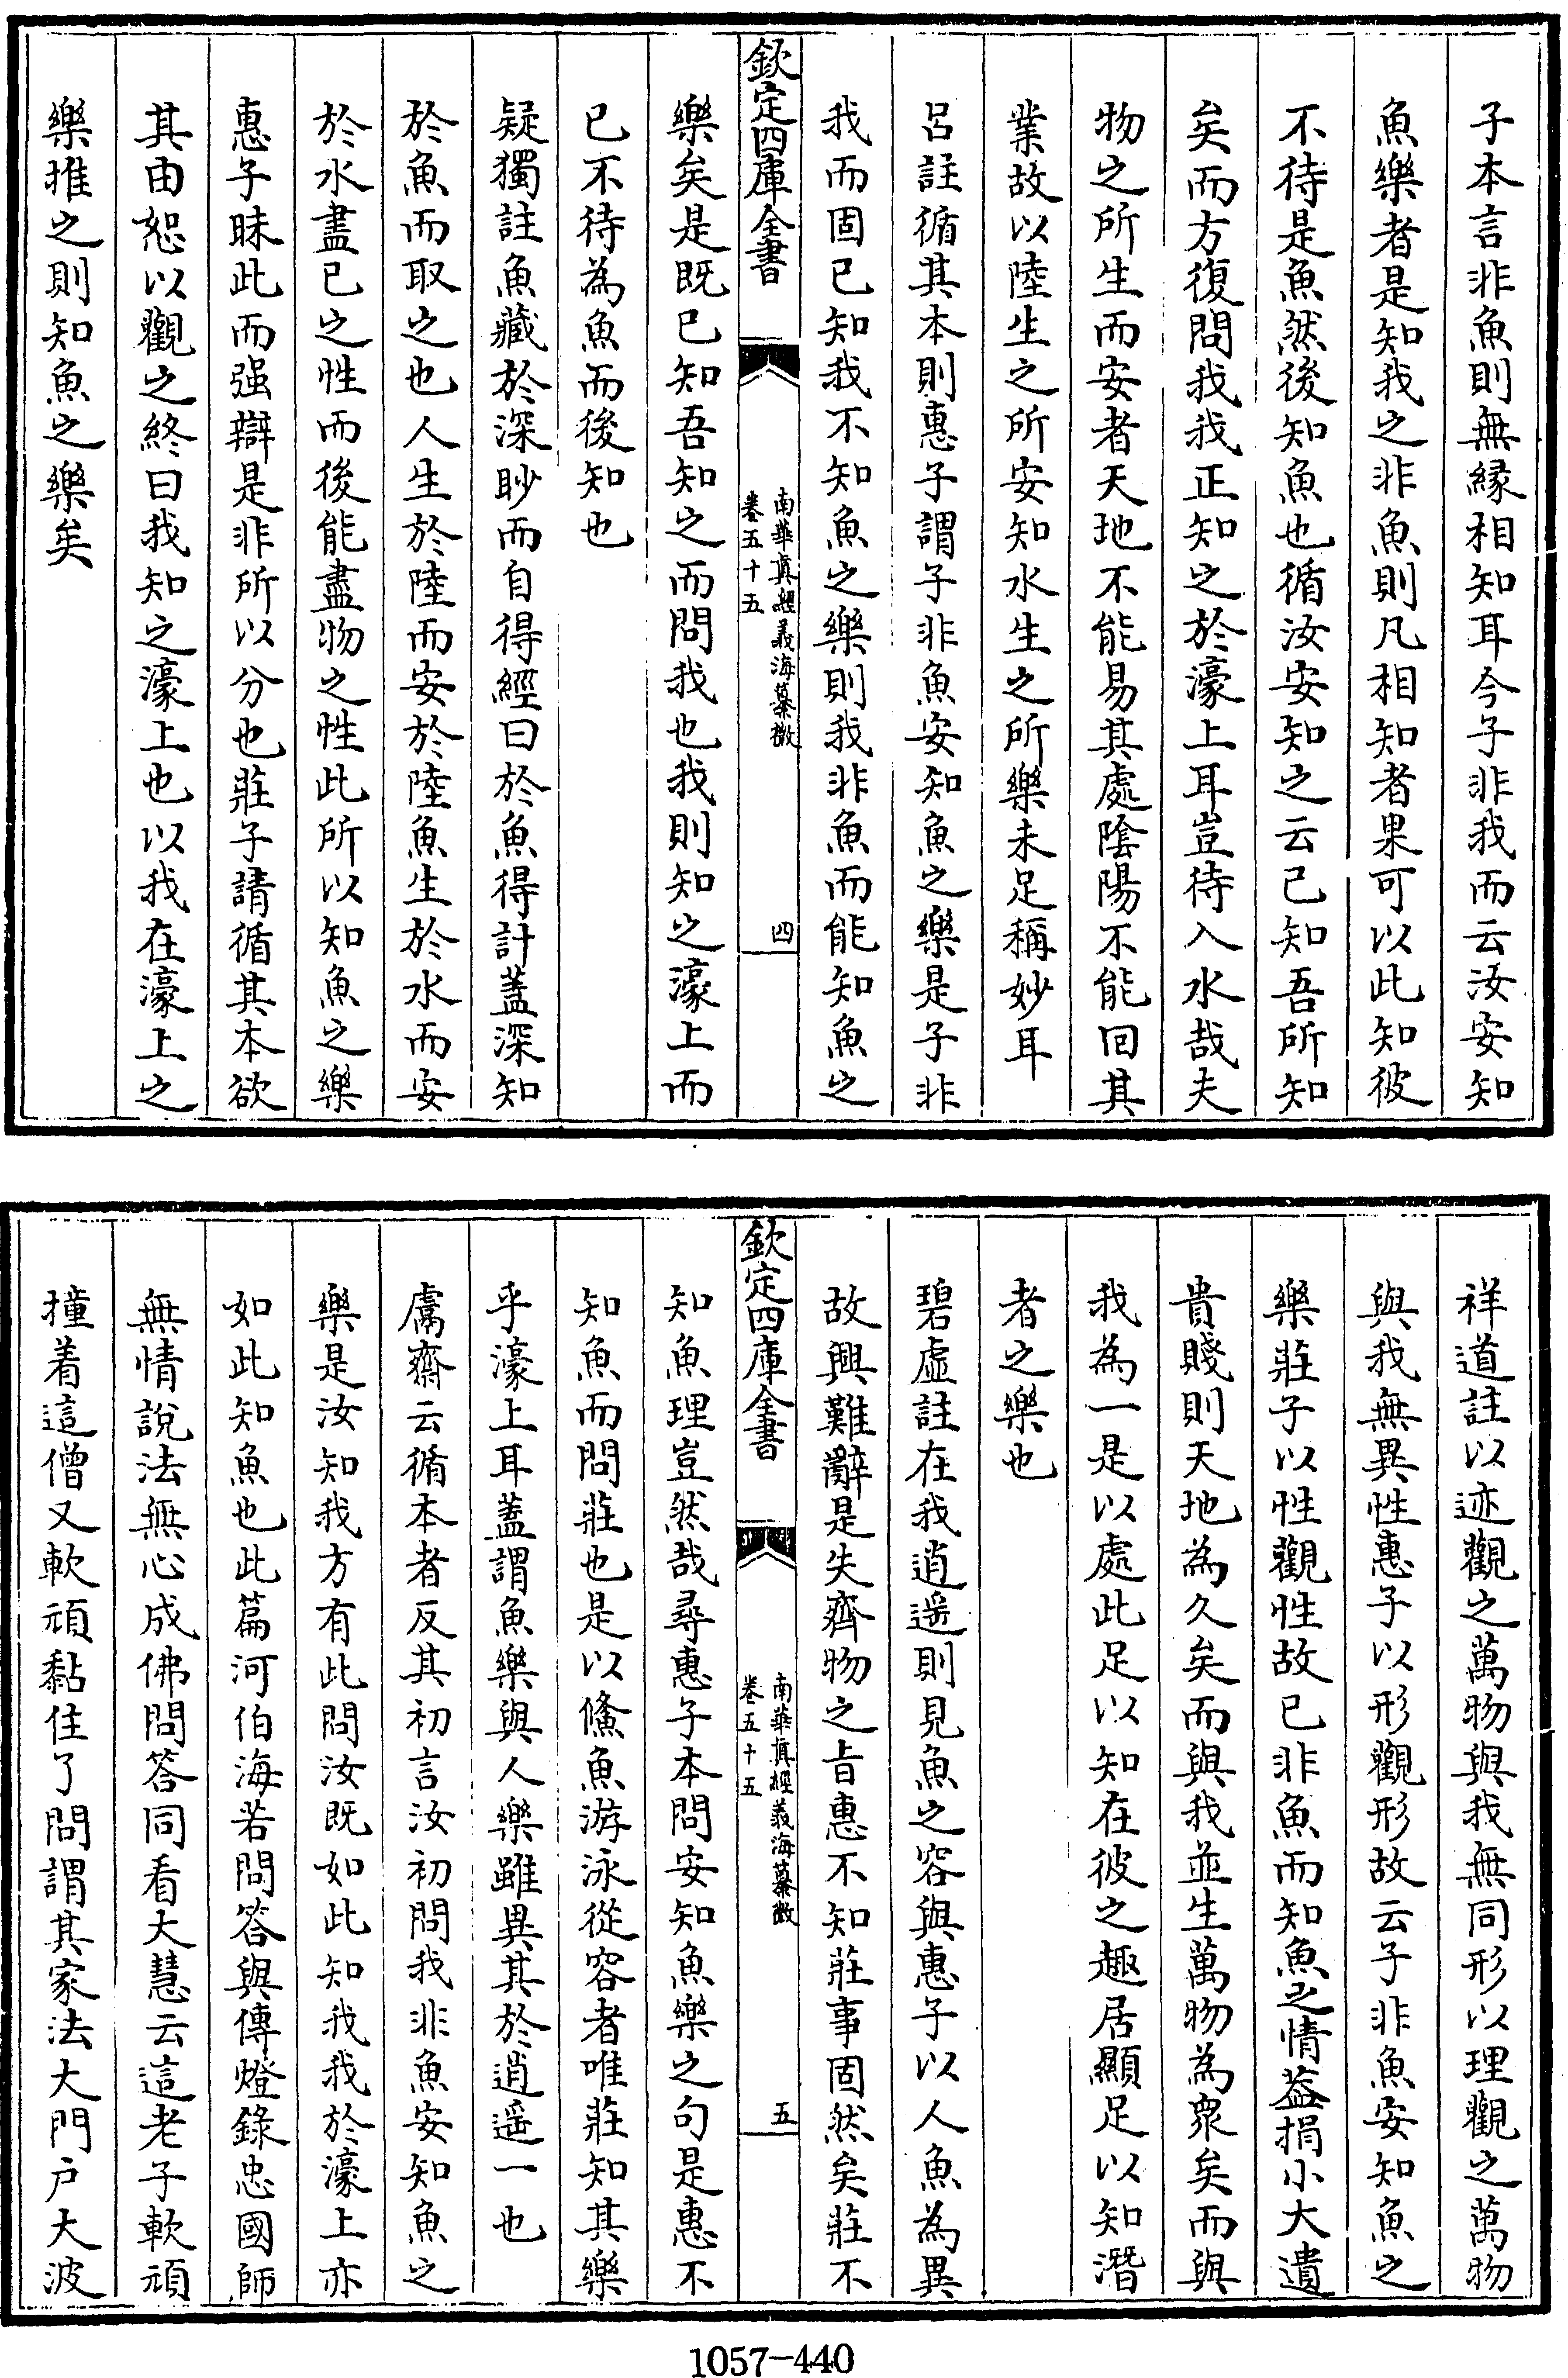 子本言非魚則無縁相知耳今子非我而云汝安知
魚樂者是知我之非魚則凡相知者果可以此知彼
不待是魚然後知魚也循汝安知之云已知吾所知
矣而方復問我我正知之於濠上耳豈待入水哉夫
物之所生而安者天地不能易其處陰陽不能回其
業故以陸生之所安知水生之所樂未足稱妙耳
呂註循其本則惠子謂子非魚安知魚之樂是子非
我而固已知我不知魚之樂則我非魚而能知魚之
欽定四庫全書
南華真經義海纂微
卷五十五
四
樂矣是既已知吾知之而問我也我則知之濠上而
已不待為魚而後知也
疑獨註魚藏於深眇而自得經曰於魚得計蓋深知
於魚而取之也人生於陸而安於陸魚生於水而安
於水盡已之性而後能盡物之性此所以知魚之樂
惠子昧此而强辯是非所以分也莊子請循其本欲
其由恕以觀之終曰我知之濠上也以我在濠上之
樂推之則知魚之樂矣
祥道註以迹觀之萬物與我無同形以理觀之萬物
與我無異性惠子以形觀形故云子非魚安知魚之
樂莊子以性觀性故已非魚而知魚之情益捐小大遺
貴賤則天地為久矣而與我並生萬物為衆矣而與
我為一是以處此足以知在彼之趣居顯足以知潛
者之樂也
碧虛註在我逍遥則見魚之容與惠子以人魚為異
故興難辭是失齊物之旨惠不知莊事固然矣莊不
欽定四庫全書
南華真經義海纂微
卷五十五
五
知魚理豈然哉尋惠子本問安知魚樂之句是惠不
知魚而問莊也是以鯈魚游泳從容者唯莊知其樂
乎濠上耳蓋謂魚樂與人樂雖異其於逍遥一也
鬳齋云循本者反其初言汝初問我非魚安知魚之
樂是汝知我方有此問汝既如此知我我於濠上亦
如此知魚也此篇河伯海若問答與傳燈錄忠國師
無情說法無心成佛問答同看大慧云這老子軟頑
撞着這僧又軟頑黏住了問謂其家法大門户大波
1057-440